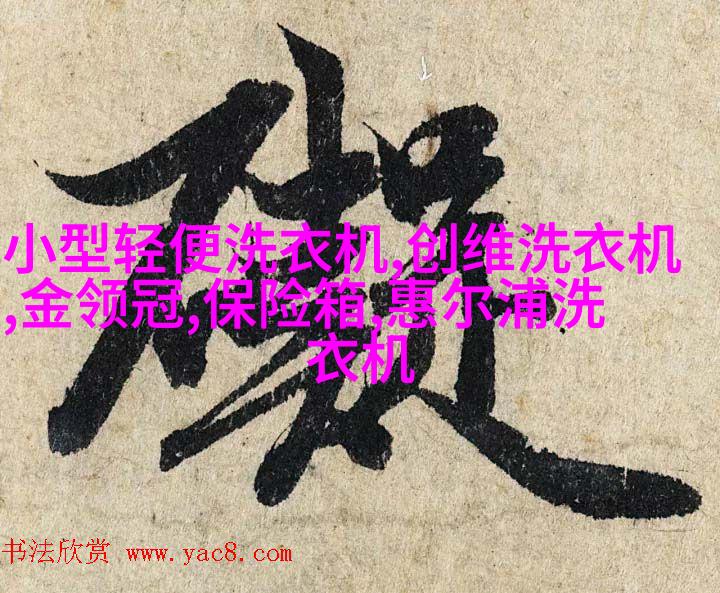 小型轻便洗衣机,创维洗衣机
,金领冠,保险箱,惠尔浦洗
衣机
书法欣赏 www.yac8.com